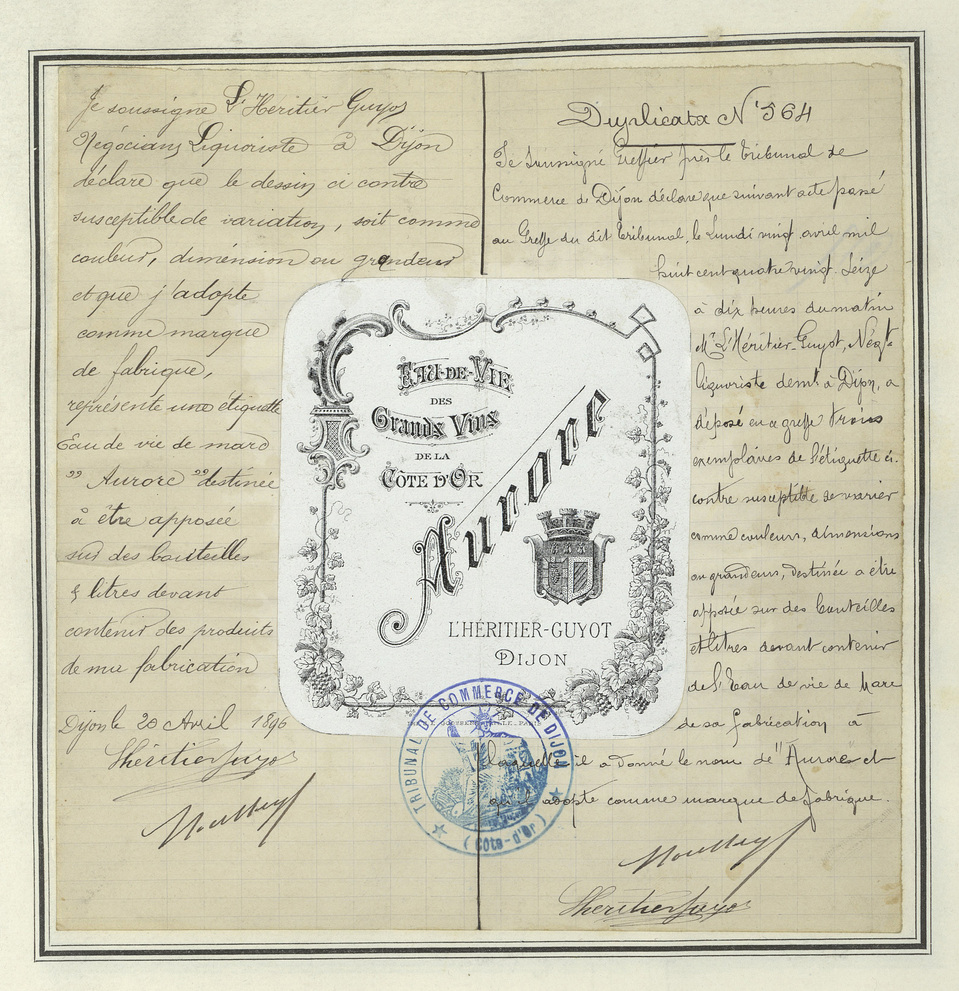 Je soussigné L'Heritier Guyot
Négociant Liquoriste à Dijon
déclare que le dessin ci contre
susceptible de variation, soit comme
couleur, dimension ou grandeur
et que j'adopte
comme marque
de fabrique,
représente une étiquette
Eau de vie de marc
"Aurore" destinée
à être apposée
sur des bouteilles
& litres devant
contenir des produits
de ma fabrication
Dijon le 20 Avril 1896
Lhéritier Guyot
Duplicata N° 564
Je soussigné Greffier près le tribunal de
Commerce de Dijon déclare que suivant acte passé
au Greffe du dit tribunal, le Lundi vingt avril mil
huit cent quatre vingt seize
à dix heures du matin
Mr L'Héritier-Guyot, Négt
liquoriste demt à Dijon, a
déposé en ce greffe trois
exemplaires de l'étiquette ci-
contre susceptible de varier
comme couleurs, dimensions
ou grandeurs, destinée a être
apposée sur des bouteilles
et litres devant contenir
de l'Eau de vie de Marc
de sa fabrication à
laquelle il a donné le nom de "Aurore" et
qu'il adopte comme marque de fabrique.
Lheritier Guyot
EAU-DE-VIE
DES
Grands Vins
DE LA
CÔTE D'OR
Aurore
L'HÉRITIER-GUYOT
DIJON
TRIBUNAL DE COMMERCE DE DIJON
(Côte-d'Or)